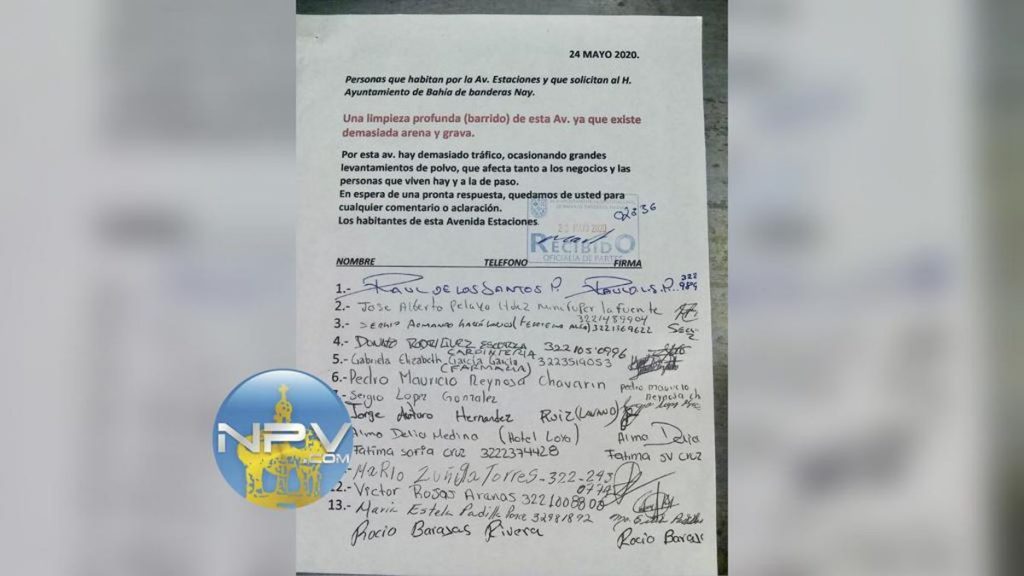 24 MAYO 2020.
Personas que habitan por la Av. Estaciones y que solicitan al H.
Ayuntamiento de Bahía de banderas Nay.
Una limpieza profunda (barrido) de esta Av. ya que existe
demasiada arena y grava.
Por esta av. hay demasiado tráfico, ocasionando grandes
levantamientos de polvo, que afecta tanto a los negocios y las
personas que viven hay y a la de paso.
En espera de una pronta respuesta, quedamos de usted para
cualquier comentario o aclaración.
Los habitantes de esta Avenida Estaciones
RECIBIDO
OFICIALIA DE PARTES
NOMBRE TELEFONO FIRMA
1.- RAUL DE LOS SANTOS P.
2.- Jose Alberto Pelayo Hdez minisuper la fuente
3221489904
3.- SERGIO ARMANDO 3221369622
4.- DONATO RODRIGUEZ 322 105 0996
CARPINTERIA
5.- Gabriela Elizabeth García García 3223519053
(FARMACIA)
6.- Pedro Mauricio Reynosa Chavarin pedro mauricio
Reynosa ch
Sergio Lopez Gonzalez
Jorge Arturo Hernandez Ruiz
Alma Delia Medina (Hotel Loro) Alma Delia
Fatima soria cruz 3222374428 Fatima SV CRUZ
.- Mario Zuñiga Torres - 322-293
0774
12.- Victor Rosas Aranas 3221008800
13.- Maria Estela Padilla Ponce 32981892
Rocio Barasas Rivera Rocio Baras
NPV
.COM